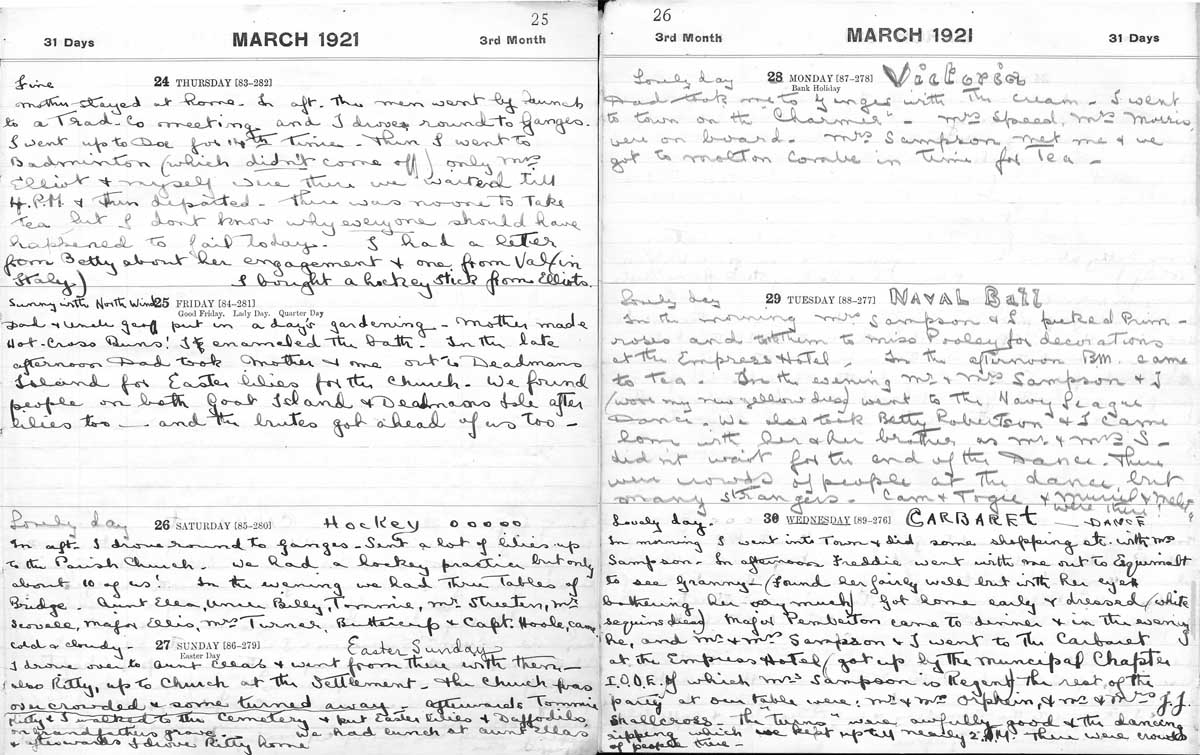 25
31 Days MARCH 1921 3rd Month
Fine 24 THURSDAY [83-282]
Mother stayed at home. In aft. the men went by launch
to a Trad. Co meeting and I drove round to Ganges.
I went up to Doc for 14th time. Then I went to
Badminton (which didn't come off) only Mrs
Elliot & myself were there we waited till
4. P.M. & then departed. There was no one to take
tea but I dont know why everyone should have
happened to fail today. I had a letter
from Betty about her engagement & one from Val (in
Italy) I bought a hockey stick from Elliots.
Sunny with North Wind 25 FRIDAY [84-281]
Good Friday. Lady Day. Quarter Day
Dad & Uncle Geoff put in a day's gardening. Mother made
Hot-Cross Buns! I enameled the bath. In the late
afternoon Dad took Mother & me out to Deadmans
Island for Easter lilies for the Church. We found
people on both Goat Island & Deadmans Isle after
lilies too — and the brutes got ahead of us too -
Lovely day 26 SATURDAY [85-280] HOCKEY OOOOO
In aft. I drove round to Ganges. Sent a lot of lilies up
to the Parish Church. We had a hockey practice but only
about 10 of us! In the evening we had Three Tables of
Bridge. Aunt Ella, Uncle Billy, Tommie, Mr Streeten, Mr
Scovell, Major Ellis, Mrs Turner, Buttercup & Capt. Hoole, came
Cold & cloudy. 27 SUNDAY [86-279] Easter Sunday
Easter Day
I drove over to Aunt Ella's & went from there with them —
also Kitty, up to Church at the Settlement. The Church was
overcrowded & some turned away. Afterwards Tommie
Kitty & I walked to the Cemetery & put Easter Lilies & Daffodils
on Grandfathers grave. We had lunch at Aunt Ellas
& afterwards I drove Kitty home
26
3rd Month MARCH 1921 31 Days
Lovely day 28 MONDAY [87-278] Victoria
Bank Holiday
Dad took me to Ganges with the cream. I went
to town on the "Charmer" - Mrs Speed, Mrs Morris
were on board. Mrs Sampson met me & we
got to Molton Combe in time for Tea -
Lovely day 29 TUESDAY [88-277] NAVAL Ball
In the morning Mrs Sampson & I picked Prim-
roses and took them to Miss Pooley for decorations
at the Empress Hotel. In the afternoon B.M. came
to tea. In the evening Mr & Mrs Sampson & I
(wore my new yellow dress) went to the Navy League
Dance. We also took Betty Robertson & I came
home with her & her brother as Mr & Mrs S -
didn't wait for the end of the Dance. There
were crowds of people at the dance, but
many strangers. Cam & Trogie & Muriel &
were there!
Lovely day. 30 WEDNESDAY [89-276] CARBARET — DANCE
In morning I went into Town & did some shopping etc. with Mrs
Sampson. In afternoon Freddie went with me out to Esquimalt
to see Granny - (found her fairly well but with her eyes
bothering her very much) Got home early & dressed (white
sequins dress) Major Pemberton came to dinner & in the evening
he, and Mr & Mrs Sampson & I went to the Carbaret
at the Empress Hotel (got up by the Muncipal Chapter
I.O.D.E. of which Mrs Sampson is Regent) the rest of the
party at our table were: Mr & Mrs Orphein, & Mr & Mrs J.J.
Shallcross. The "turns" were awfully good & the dancing
ripping which we kept up till nearly 2. A.M. There were crowds
of people there -